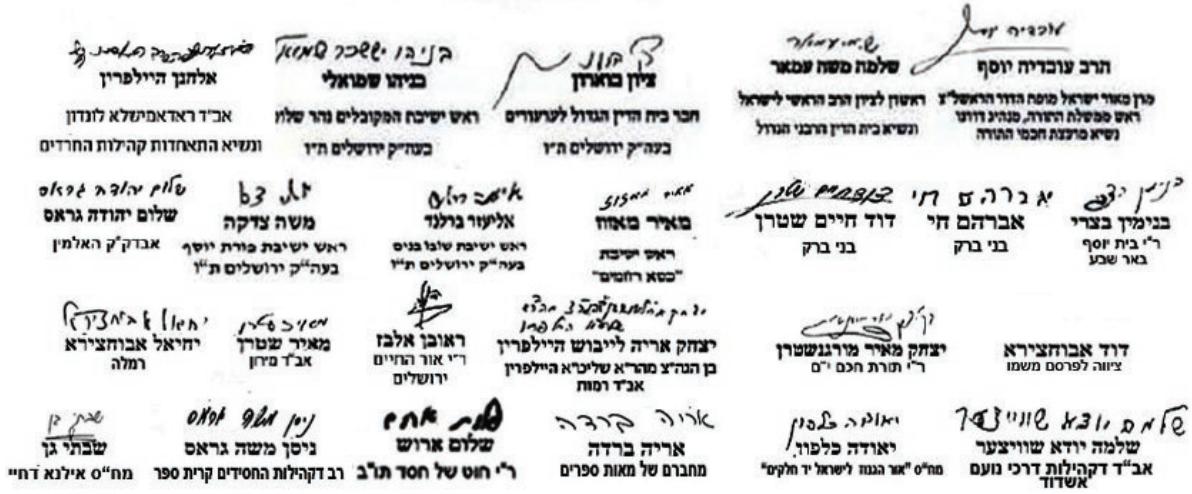 הרב עובדיה יוסף
מרן מאור ישראל מופת הדור הראשל"צ
ראש ממשלת התורה, מנהיג דורנו
נשיא מועצת חכמי התורה
שלמה משה עמאר
ראשון לציון הרב הראשי לישראל
ונשיא בית הדין הרבני הגדול
ציון בוארון
חבר בית הדין הגדול לערעורים
בעה"ק ירושלים ת"ו
בניהו יששכר שמואלי
בניהו שמואלי
ראש ישיבת המקובלים נהר שלום
בעה"ק ירושלים ת"ו
אלחנן היילפרין
אב"ד ראדאמישלא לונדון
ונשיא התאחדות קהילות החרדים
בנימין בצרי
ר"י בית יוסף
באר שבע
אברהם חי
אברהם חי
בני ברק
דוד חיים שטרן
בני ברק
מאיר מאזוז
מאיר מאזוז
ראש ישיבת
"כסא רחמים"
אליעזר ברלנד
ראש ישיבת שובו בנים
בעה"ק ירושלים ת"ו
משה צדקה
ראש ישיבת פורת יוסף
בעה"ק ירושלים ת"ו
שלום יהודה גראס
שלום יהודה גראס
אבדק"ק האלמין
דוד אבוחצירא
ציווה לפרסם משמו
יצחק מאיר מורגנשטרן
ר"י תורת חכם י"ם
יצחק אריה לייבוש היילפרין
בן הגה"צ מהר"א שליט"א היילפרין
אב"ד רמות
ראובן אלבז
ר"י אור החיים
ירושלים
מאיר שטרן
מאיר שטרן
אב"ד מירון
יחיאל אבוחצירא
יחיאל אבוחצירא
רמלה
שלמה יודא שווייצער
שלמה יודא שוויצער
אב"ד דקהילות דרכי נועם
אשדוד
יאודה כלפון
יאודה כלפון
מח"ס "אור הגנוז לישראל יד חלקים"
אריה ברדה
אריה ברדה
מחברם של מאות ספרים
שלום ארוש
ר"י חוט של חסד תו"ב
ניסן משה גראס
ניסן משה גראס
רב דקהילות החסידים קרית ספר
שבתי גן
מח"ס אילנא דחיי